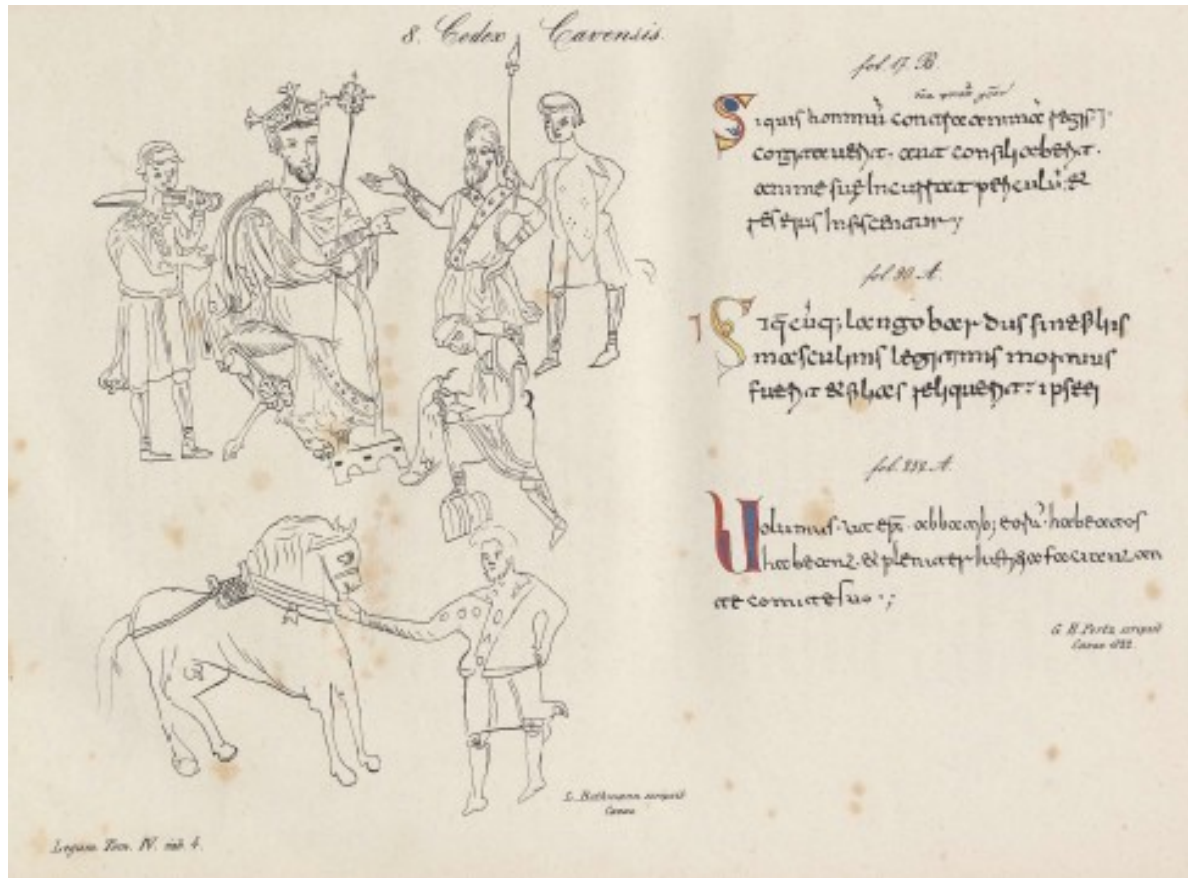 8. Codex Cavensis.
fol. 17 B.
Siquis hominū contra animā regis
cogitaverit. aut consiliaberit.
anime sue incurrat periculū. &
res eius infiscentur
fol. 90 A.
Siq̄cūq; langobardus sine filiis
masculinis legitimis mortuus
fuerit & filias reliquerit: ipsei
fol. 252 A.
Volumus. ut ep̄i. abbatib; eorū. habeatos
habeant. & pleniter iustitia faciant an
te comite suo.;
G. H. Pertz scripsit
Cavae 1822.
L. Bethmann scripsit
Cavae
Legum Tom. IV. tab. 4.